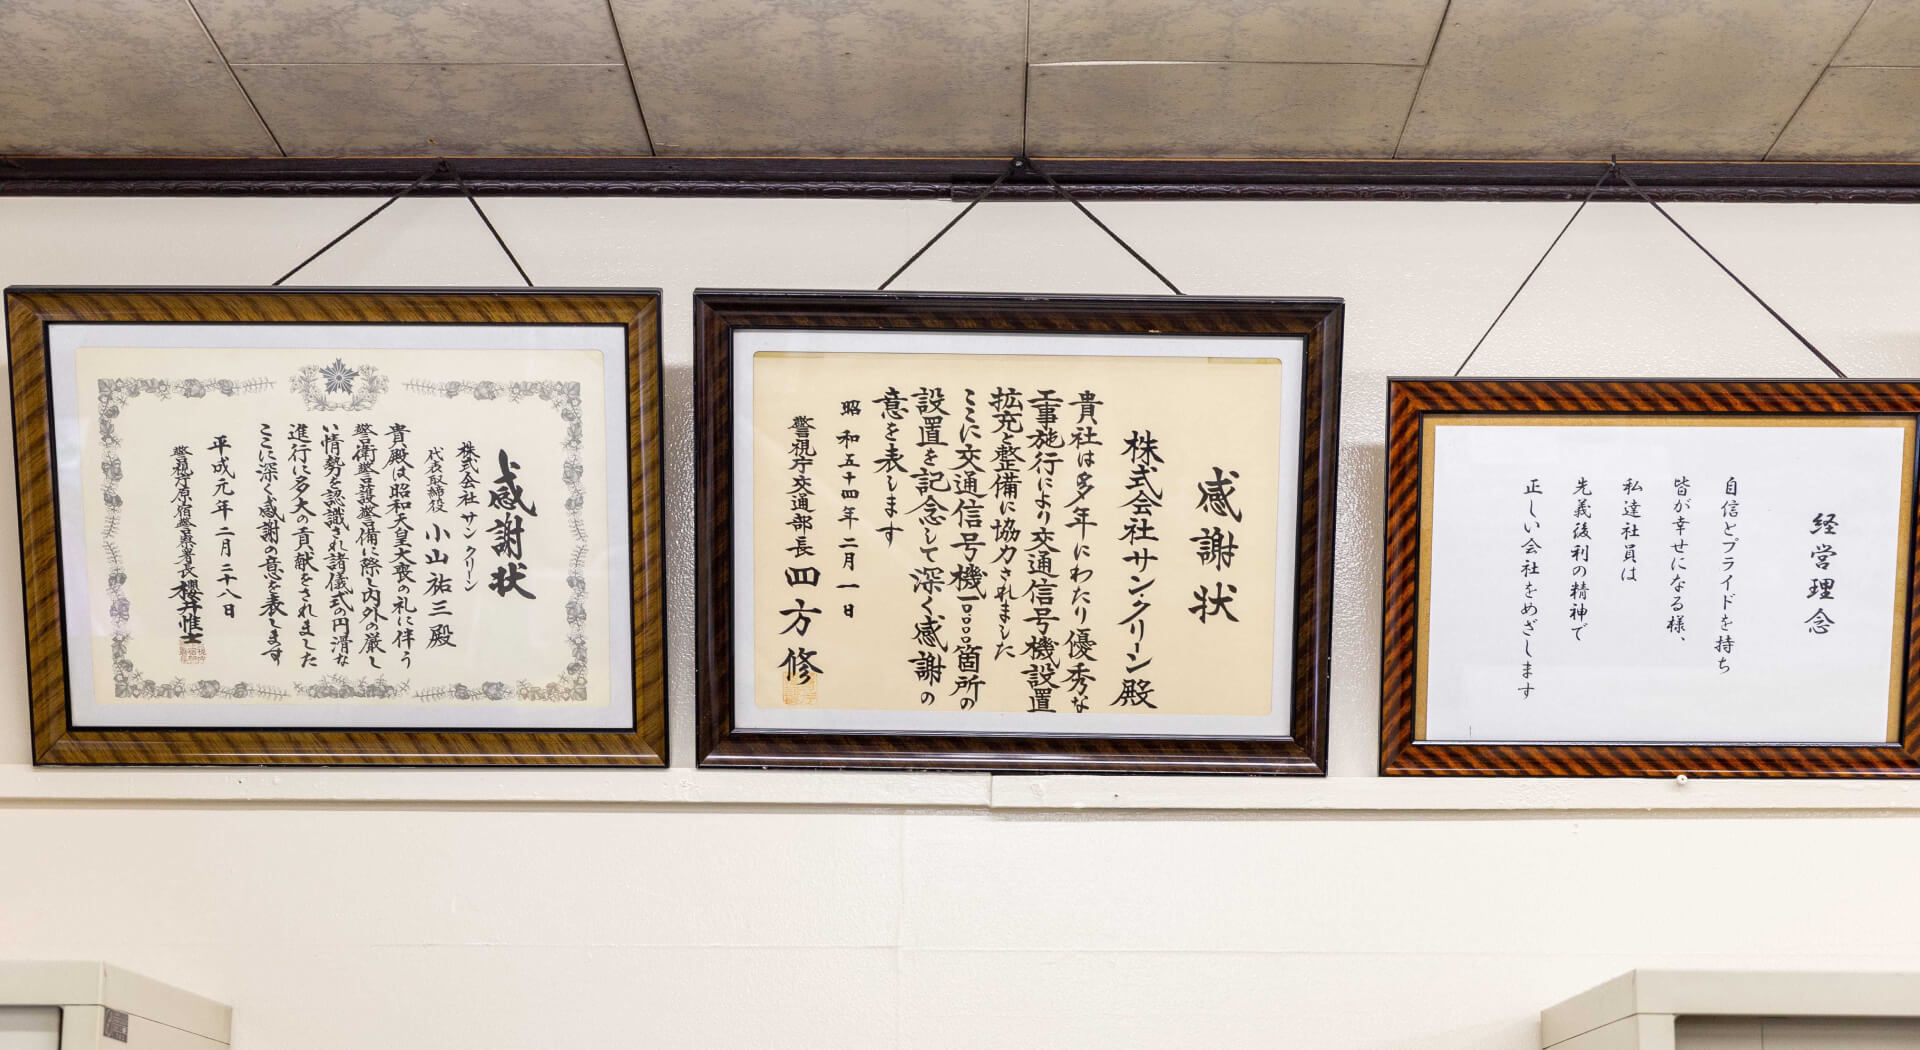 感謝状
株式会社 サンクリーン
代表取締役 小山祐三殿
貴殿は昭和天皇大喪の礼に伴う
警衛警護警備に際し内外の厳し
い情勢を認識され諸儀式の円滑な
進行に多大の貢献をされました
ここに深く感謝の意を表します
平成元年二月二十八日
警視庁原宿警察署長 櫻井惟士
感謝状
株式会社サン・クリーン殿
貴社は多年にわたり優秀な
工事施行により交通信号機設置
拡充と整備に協力されました
ここに交通信号機一品品箇所の
設置を記念して深く感謝の
意を表します
昭和五十四年二月一日
警視庁交通部長 四方修
経営理念
自信とプライドを持ち
皆が幸せになる様、
私達社員は
先義後利の精神で
正しい会社をめざします